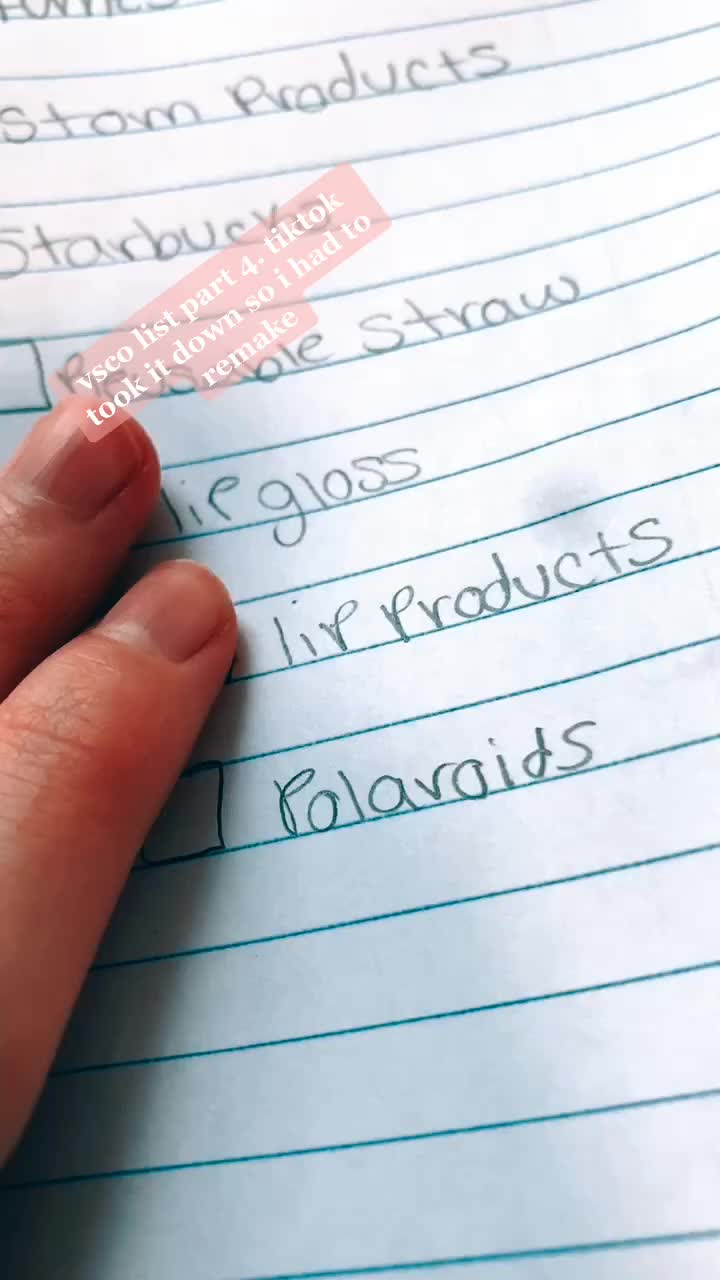 Stom Products
Starbucks
Reusable Straw
lip gloss
lip Products
Polaroids
vsco list part 4. tiktok
took it down so i had to
remake